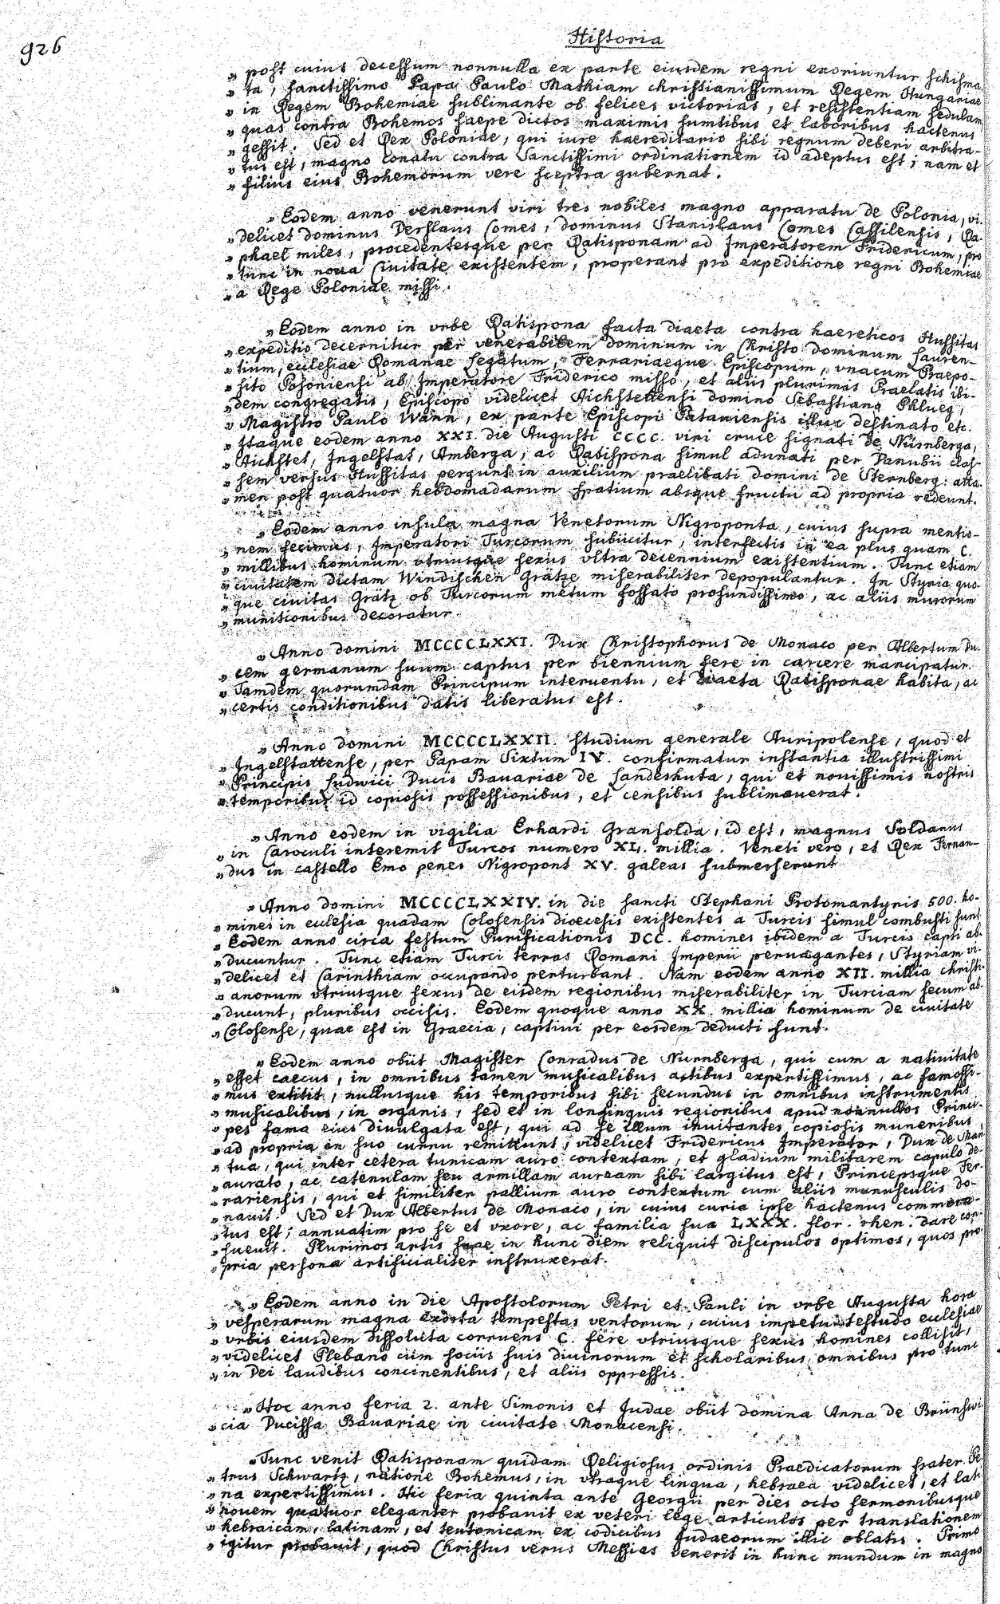 926
Historia
„ post cuius decessum nonnulla ex parte eiusdem regni exoriuntur schisma-
„ ta, sanctissimo Papa Paulo Mathiam christianissimum Regem Hungariae
„ in Regem Bohemiae sublimante ob felices victorias, et resistentiam sedulam
„ quas contra Bohemos saepe dictos maximis sumtibus et laboribus hactenus
„ gessit. Sed et Rex Poloniae, qui iure haereditario sibi regnum deberi arbitra-
„ tus est, magno conatu contra Sanctissimi ordinationem id adeptus est; nam et
„ filius eius Bohemorum vere sceptra gubernat.
„ Eodem anno venerunt viri tres nobiles magno apparatu de Polonia, vi-
„ delicet dominus Derslaus Comes, dominus Stanislaus Comes Cassilensis, Ra-
„ phael miles, procedentesque per Ratisponam ad Imperatorem Fridericum, pro
„ tunc in noua Civitate existentem, properant pro expeditione regni Bohemiae
„ a Rege Poloniae missi.
„ Eodem anno in vrbe Ratispona facta diaeta contra haereticos Hussitas
„ expeditio decernitur per venerabilem dominum in Christo dominum Lauren-
„ tium, ecclesiae Romanae Legatum, Ferrariaeque Episcopum, vnacum Praepo-
„ sito Posoniensi ab Imperatore Friderico misso, et aliis plurimis Praelatis ibi-
„ dem congregatis, Episcopo videlicet Aichstettensi domino Sebastiano Phlueg,
„ Magistro Paulo Wann, ex parte Episcopi Patauiensis illuc destinato etc.
„ Itaque eodem anno XXI. die Augusti CCCC. viri cruce signati de Nürnberga,
„ Aichstet, Ingelstat, Amberga, ac Ratispona simul adunati per Danubii clas-
„ sem versus Hussitas pergunt in auxilium praelibati domini de Sternberg: atta-
„ men post quatuor hebdomadarum spatium absque fructu ad propria redeunt.
„ Eodem anno insula magna Venetorum Nigroponta, cuius supra mentio-
„ nem fecimus, Imperatori Turcorum subiicitur, interfectis in ea plus quam C.
„ millibus hominum utriusque sexus vltra decennium existentium. Tunc etiam
„ civitatem dictam Windischen Grätze miserabiliter depopulantur. In Styria quo-
„ que civitas Grätz ob Turcorum metum fossato profundissimo, ac aliis murorum
„ munitionibus decoratur.
„ Anno domini MCCCCLXXI. Dux Christophorus de Monaco per Albertum Du-
„ cem germanum suum captus per biennium fere in carcere mancipatur.
„ Tamdem quorumdam Principum interuentu, et diaeta Ratisponae habita, ac
„ certis conditionibus datis liberatus est.
„ Anno domini MCCCCLXXII. studium generale Auripolense, quod et
„ Ingelstattense, per Papam Sixtum IV. confirmatur instantia illustrissimi
„ Principis Ludwici Ducis Bauariae de Landeshuta, qui et nouissimis nostris
„ temporibus id copiosis possessionibus, et censibus sublimauerat.
„ Anno eodem in vigilia Erhardi Gransolda, id est, magnus Soldanus
„ in Caroculi interemit Turcos numero XL. millia. Veneti vero, et Rex Fernan-
„ dus in castello Emo penes Nigropont XV. galeas submerserunt
„ Anno domini MCCCCLXXIV. in die sancti Stephani Protomartyris 500. ho-
„ mines in ecclesia quadam Colosensis dioecesis existentes a Turcis simul combusti sunt
„ Eodem anno circa festum Purificationis DCC. homines ibidem a Turcis capti ab-
„ ducuntur. Tunc etiam Turci terras Romani Imperii peruagantes, Styriam vi-
„ delicet et Carinthiam occupando perturbant. Nam eodem anno XII. millia christi-
„ anorum vtriusque sexus de eisdem regionibus miserabiliter in Turciam secum ab-
„ ducunt, pluribus occisis. Eodem quoque anno XX. millia hominum de civitate
„ Colosense, quae est in Graecia, captiui per eosdem deducti sunt.
„ Eodem anno obiit Magister Conradus de Nurnberga, qui cum a nativitate
„ esset caecus, in omnibus tamen musicalibus actibus expertissimus, ac famosis-
„ mus extitit, nullusque his temporibus sibi secundus in omnibus instrumentis
„ musicalibus, in organis, sed et in longinquis regionibus apud nonnullos Princi-
„ pes fama eius divulgata est, qui ad se illum inuitantes copiosis muneribus
„ ad propria in suo curru remittunt, videlicet Fridericus Imperator, Dux de Man-
„ tua, qui inter cetera tunicam auro contextam, et gladium militarem capulo de-
„ aurato, ac catenulam seu armillam auream sibi largitus est, Princepsque Fer-
„ rariensis, qui et similiter pallium auro contextum cum aliis munusculis do-
„ nauit. Sed et Dux Albertus de Monaco, in cuius curia ipse hactenus commora-
„ tus est, annuatim pro se et vxore, ac familia sua LXXX. flor. rhen. dare con-
„ sueuit. Plurimos artis suae in hunc diem reliquit discipulos optimos, quos pro-
„ pria persona artificialiter instruxerat.
„ Eodem anno in die Apostolorum Petri et Pauli in vrbe Augusta hora
„ vesperarum magna exorta tempestas ventorum, cuius impetu testudo ecclesiae
„ vrbis eiusdem dissoluta corruens C. fere vtriusque sexus homines collisit,
„ videlicet Plebano cum sociis suis diuinorum et scholaribus omnibus pro tunc
„ in Dei laudibus concinentibus, et aliis oppressis.
„ Hoc anno feria 2. ante Simonis et Judae obiit domina Anna de Brünswi-
„ cia Ducissa Bauariae in civitate Monacensi.
„ Tunc venit Ratisponam quidam Religiosus ordinis Praedicatorum frater Pe-
„ trus Schwartz, natione Bohemus, in vtraque lingua, hebraea videlicet, et lati-
„ na expertissimus. Hic feria quinta ante Georgii per dies octo sermonibusque
„ nouem quatuor eleganter probauit ex veteri lege articulos per translationem
„ hebraicam, latinam, et teutonicam ex codicibus Judaeorum illic oblatis. Primo
„ igitur probauit, quod Christus verus Messias venerit in hunc mundum in magno